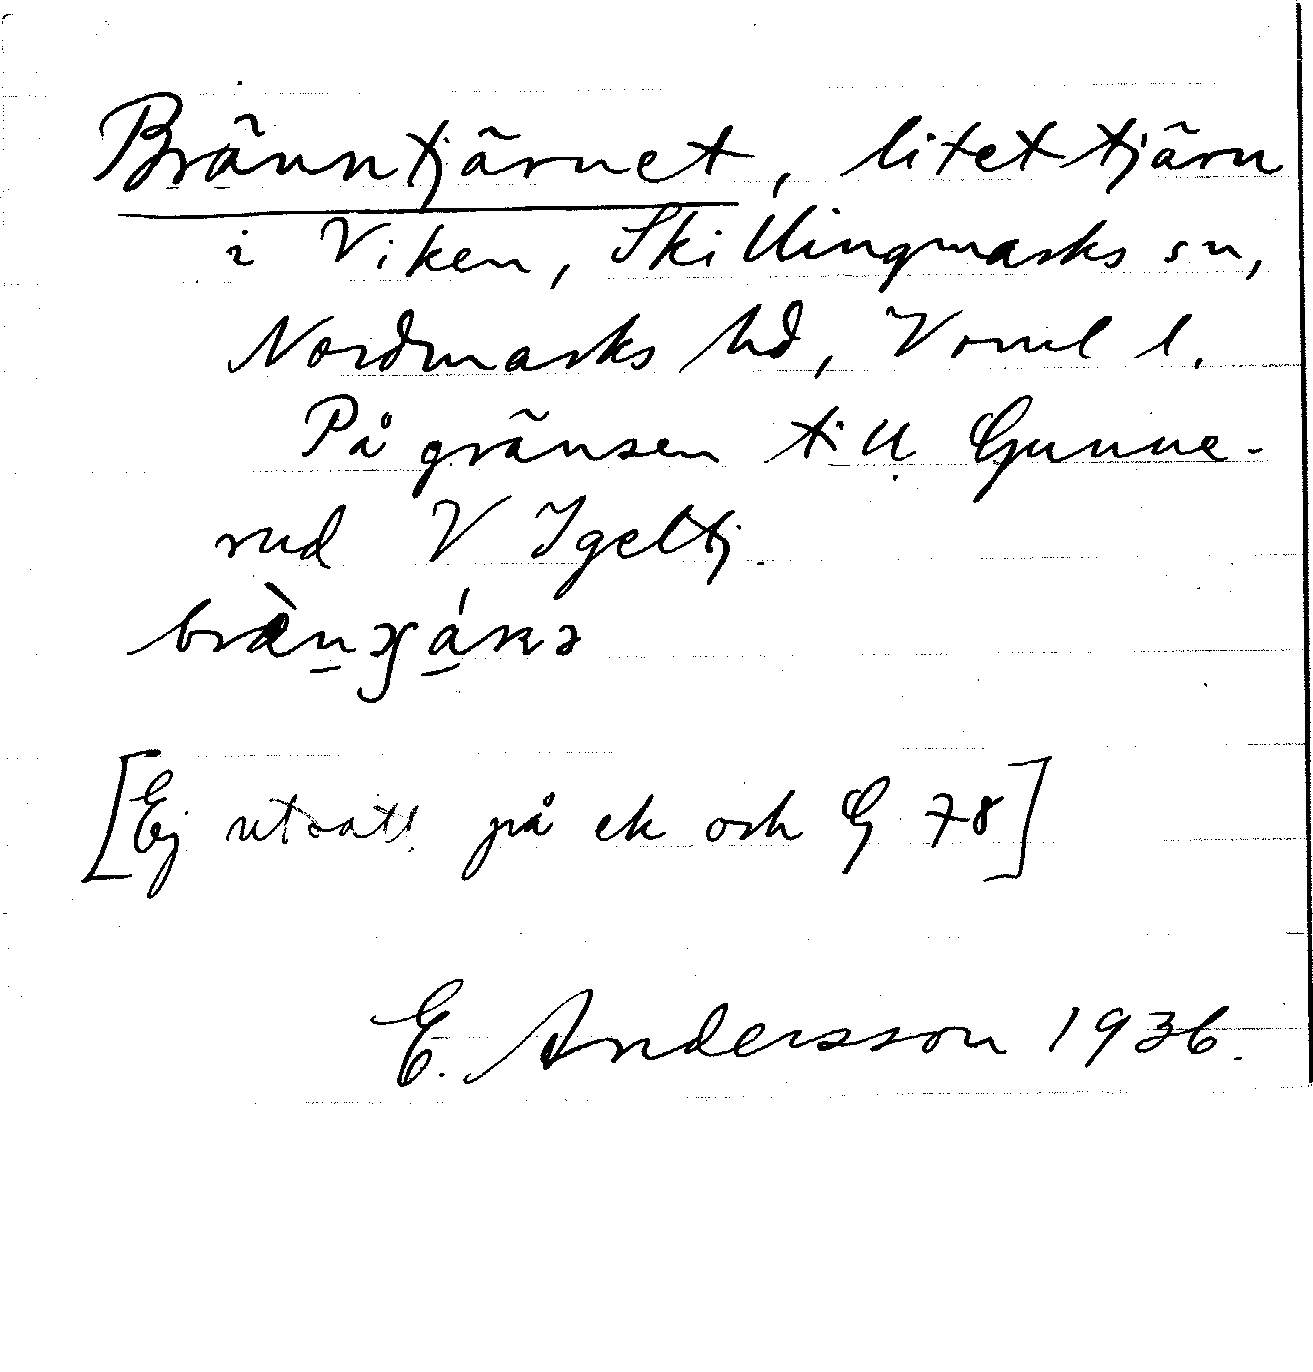 Bränntjärnet, litet tjärn
i Viken, Skillingmarks sn,
Nordmarks hd, Vrml l.
På gränsen till Gunne-
rud V Igeltj.
[Ej utsatt på ek och G 78]
E. Andersson 1936.